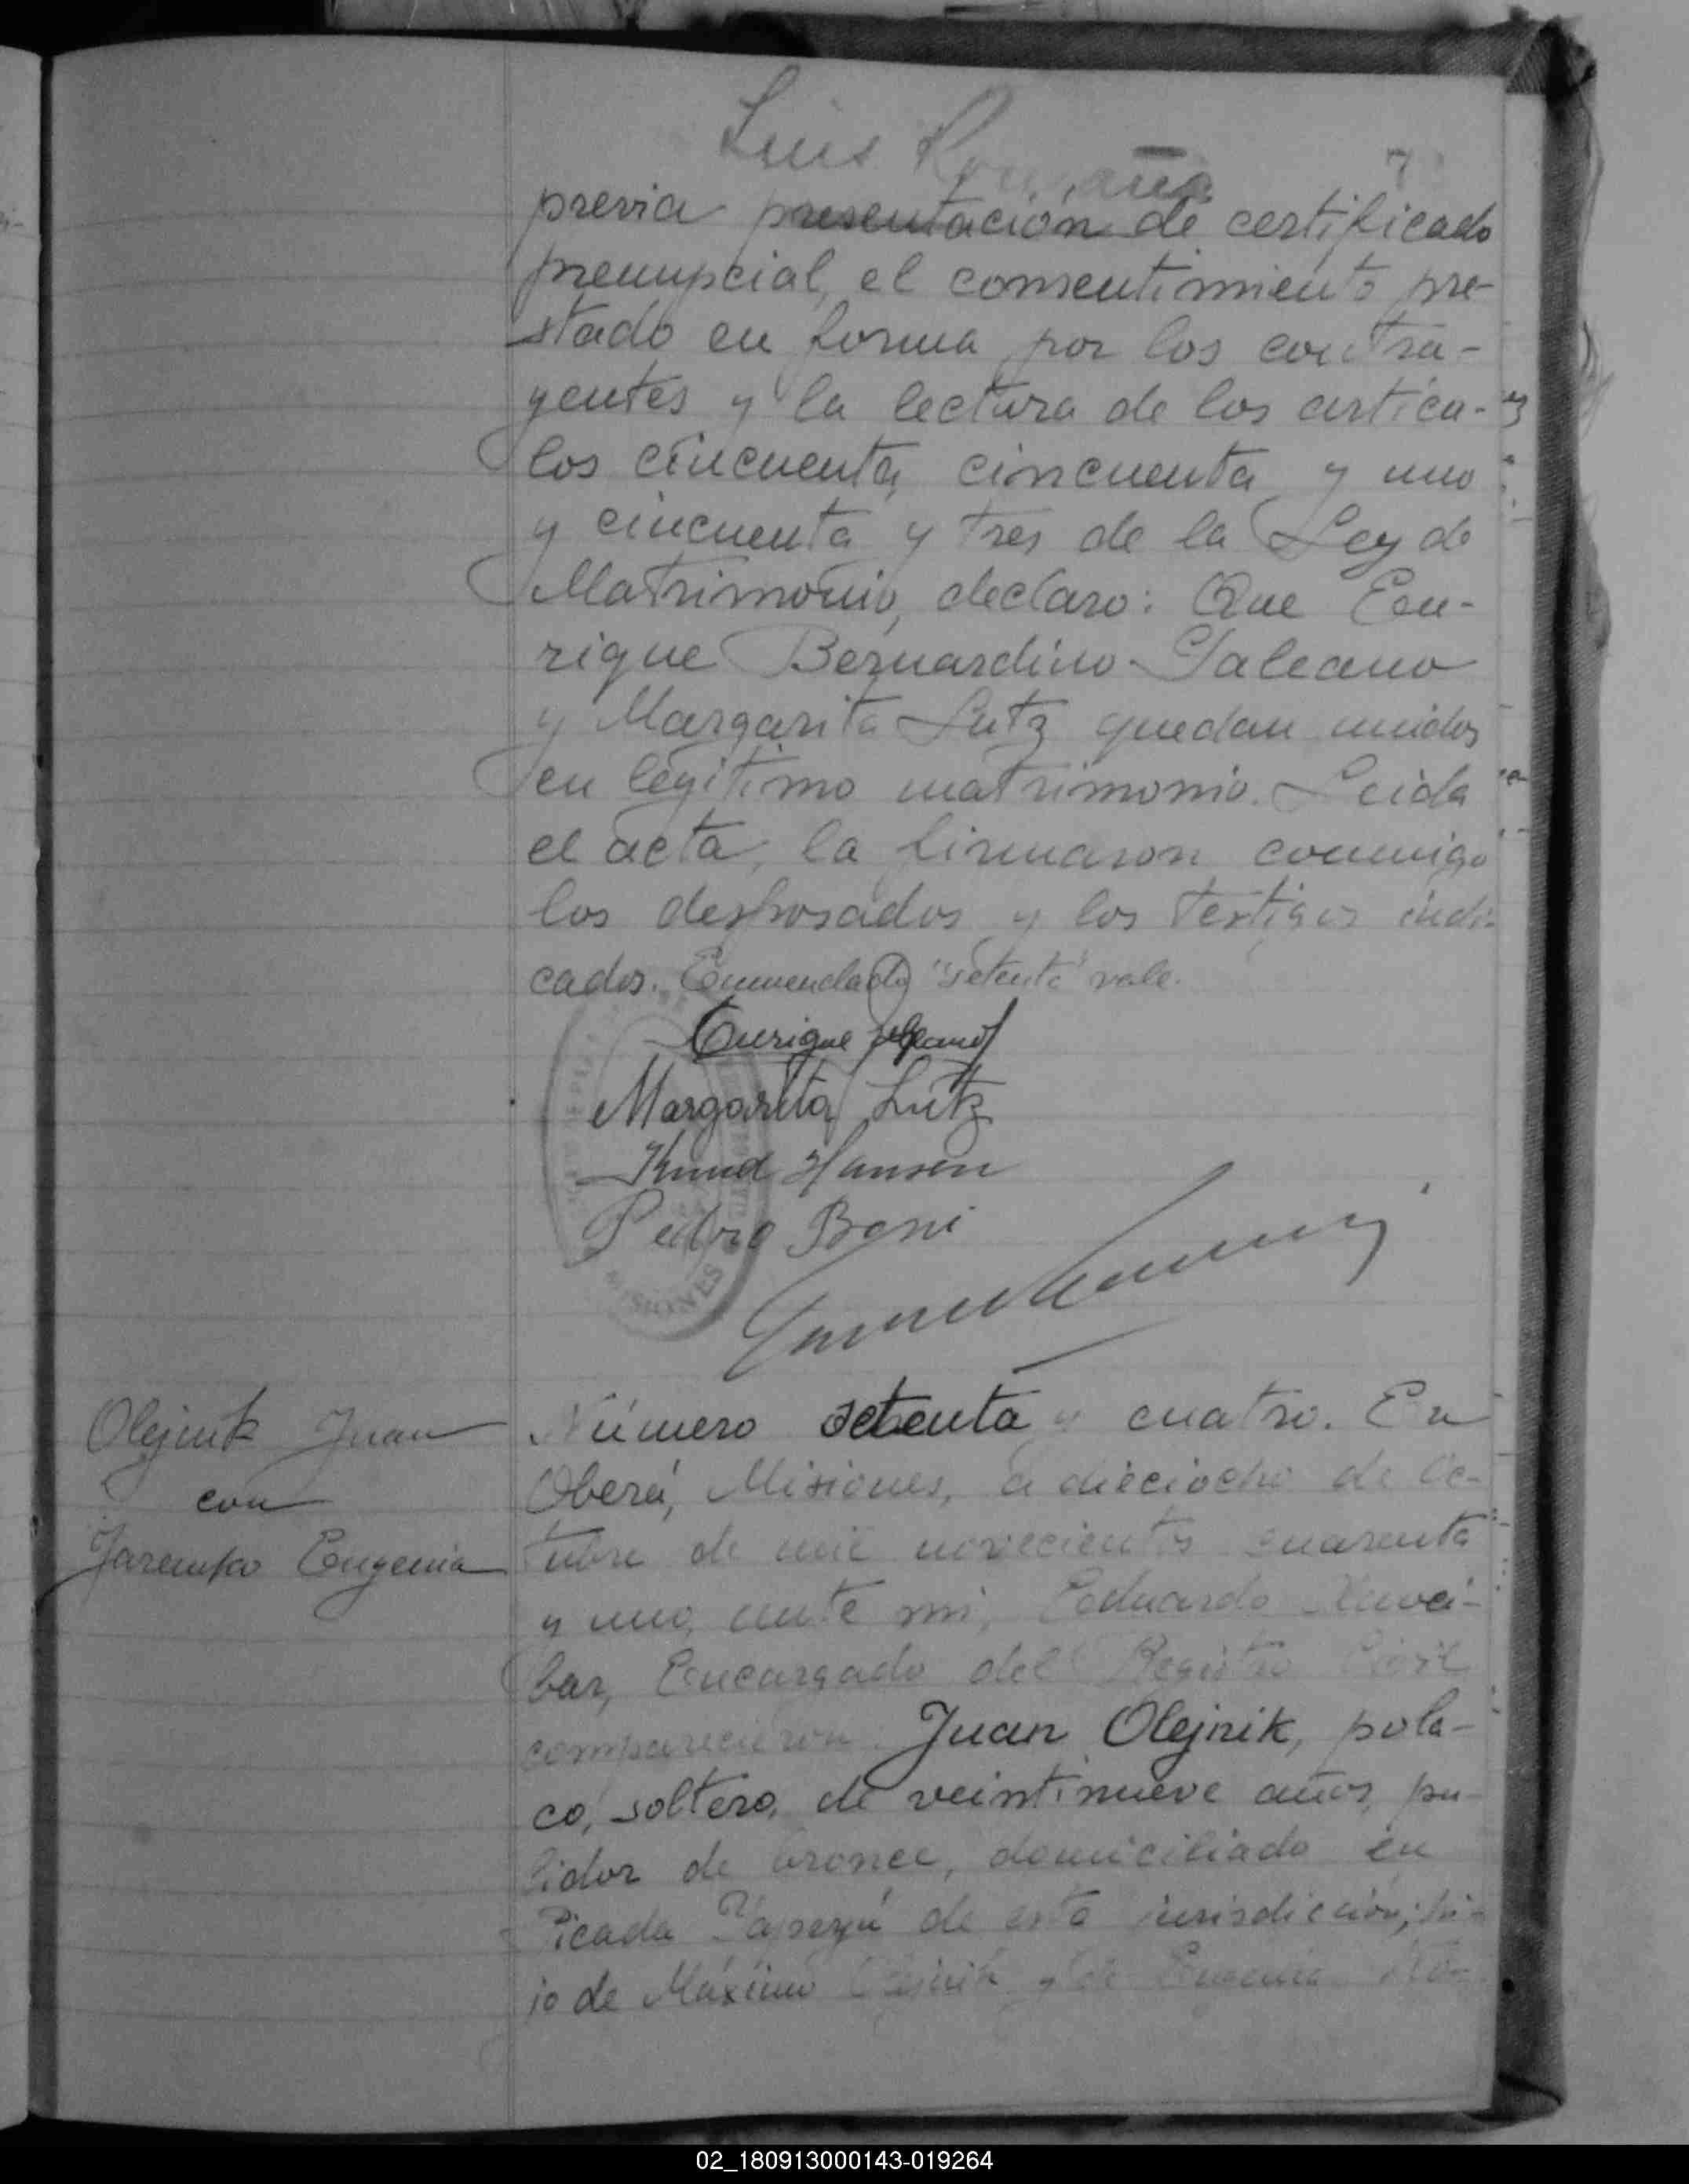 Luis
7
previa presentación de certificado
prenupcial, el consentimiento pre-
stado en forma por los contra-
yentes y la lectura de los articu-
los cincuenta, cincuenta y uno
y cincuenta y tres de la Ley de
Matrimonio, declaro: Que En-
rique Bernardino Galeano
y Margarita Lutz quedan unidos
en legitimo matrimonio. Leida
el acta, la firmaron conmigo
los desposados y los testigos indi-
cados. Enmendado "setenta" vale.
Enrique Galeano
Margarita Lutz
Knud Hansen
Pedro Boni
MISIONES
Olejnik Juan
con
Jaremko Eugenia
Número setenta y cuatro. En
Oberá, Misiones, a dieciocho de Oc-
tubre de mil novecientos cuarenta
y uno, ante mi, Eduardo
bar, Encargado del Registro Civil
comparecieron: Juan Olejnik, pola-
co, soltero, de veintinueve años, pu-
lidor de bronce, domiciliado en
Picada Yapeyú de esta jurisdicción; hi-
jo de Máximo Olejnik y de Eugenia
02_180913000143-019264